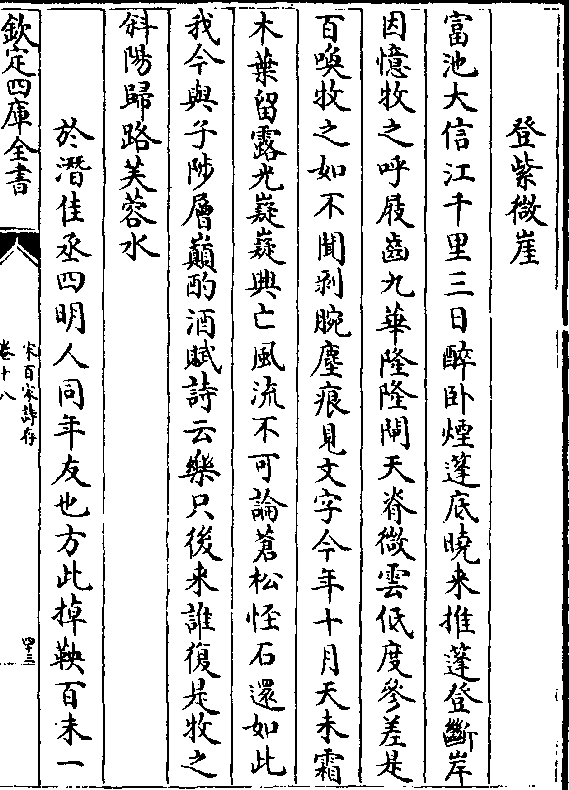 登紫微崖
富池大信江千里三日醉卧煙蓬底曉来推蓬登斷岸
因憶牧之呼屐齒九華隆隆閘天脊微雲低度參差是
百喚牧之如不聞剥腕塵痕見文字今年十月天未霜
木葉留露光嶷嶷興亡風流不可論蒼松怪石還如此
我今與子陟層巔酌酒賦詩云樂只後来誰復是牧之
斜陽歸路芙蓉水
於潛佳丞四明人同年友也方此掉鞅百未一
欽定四庫全書
宋百家詩存
卷十八
四三